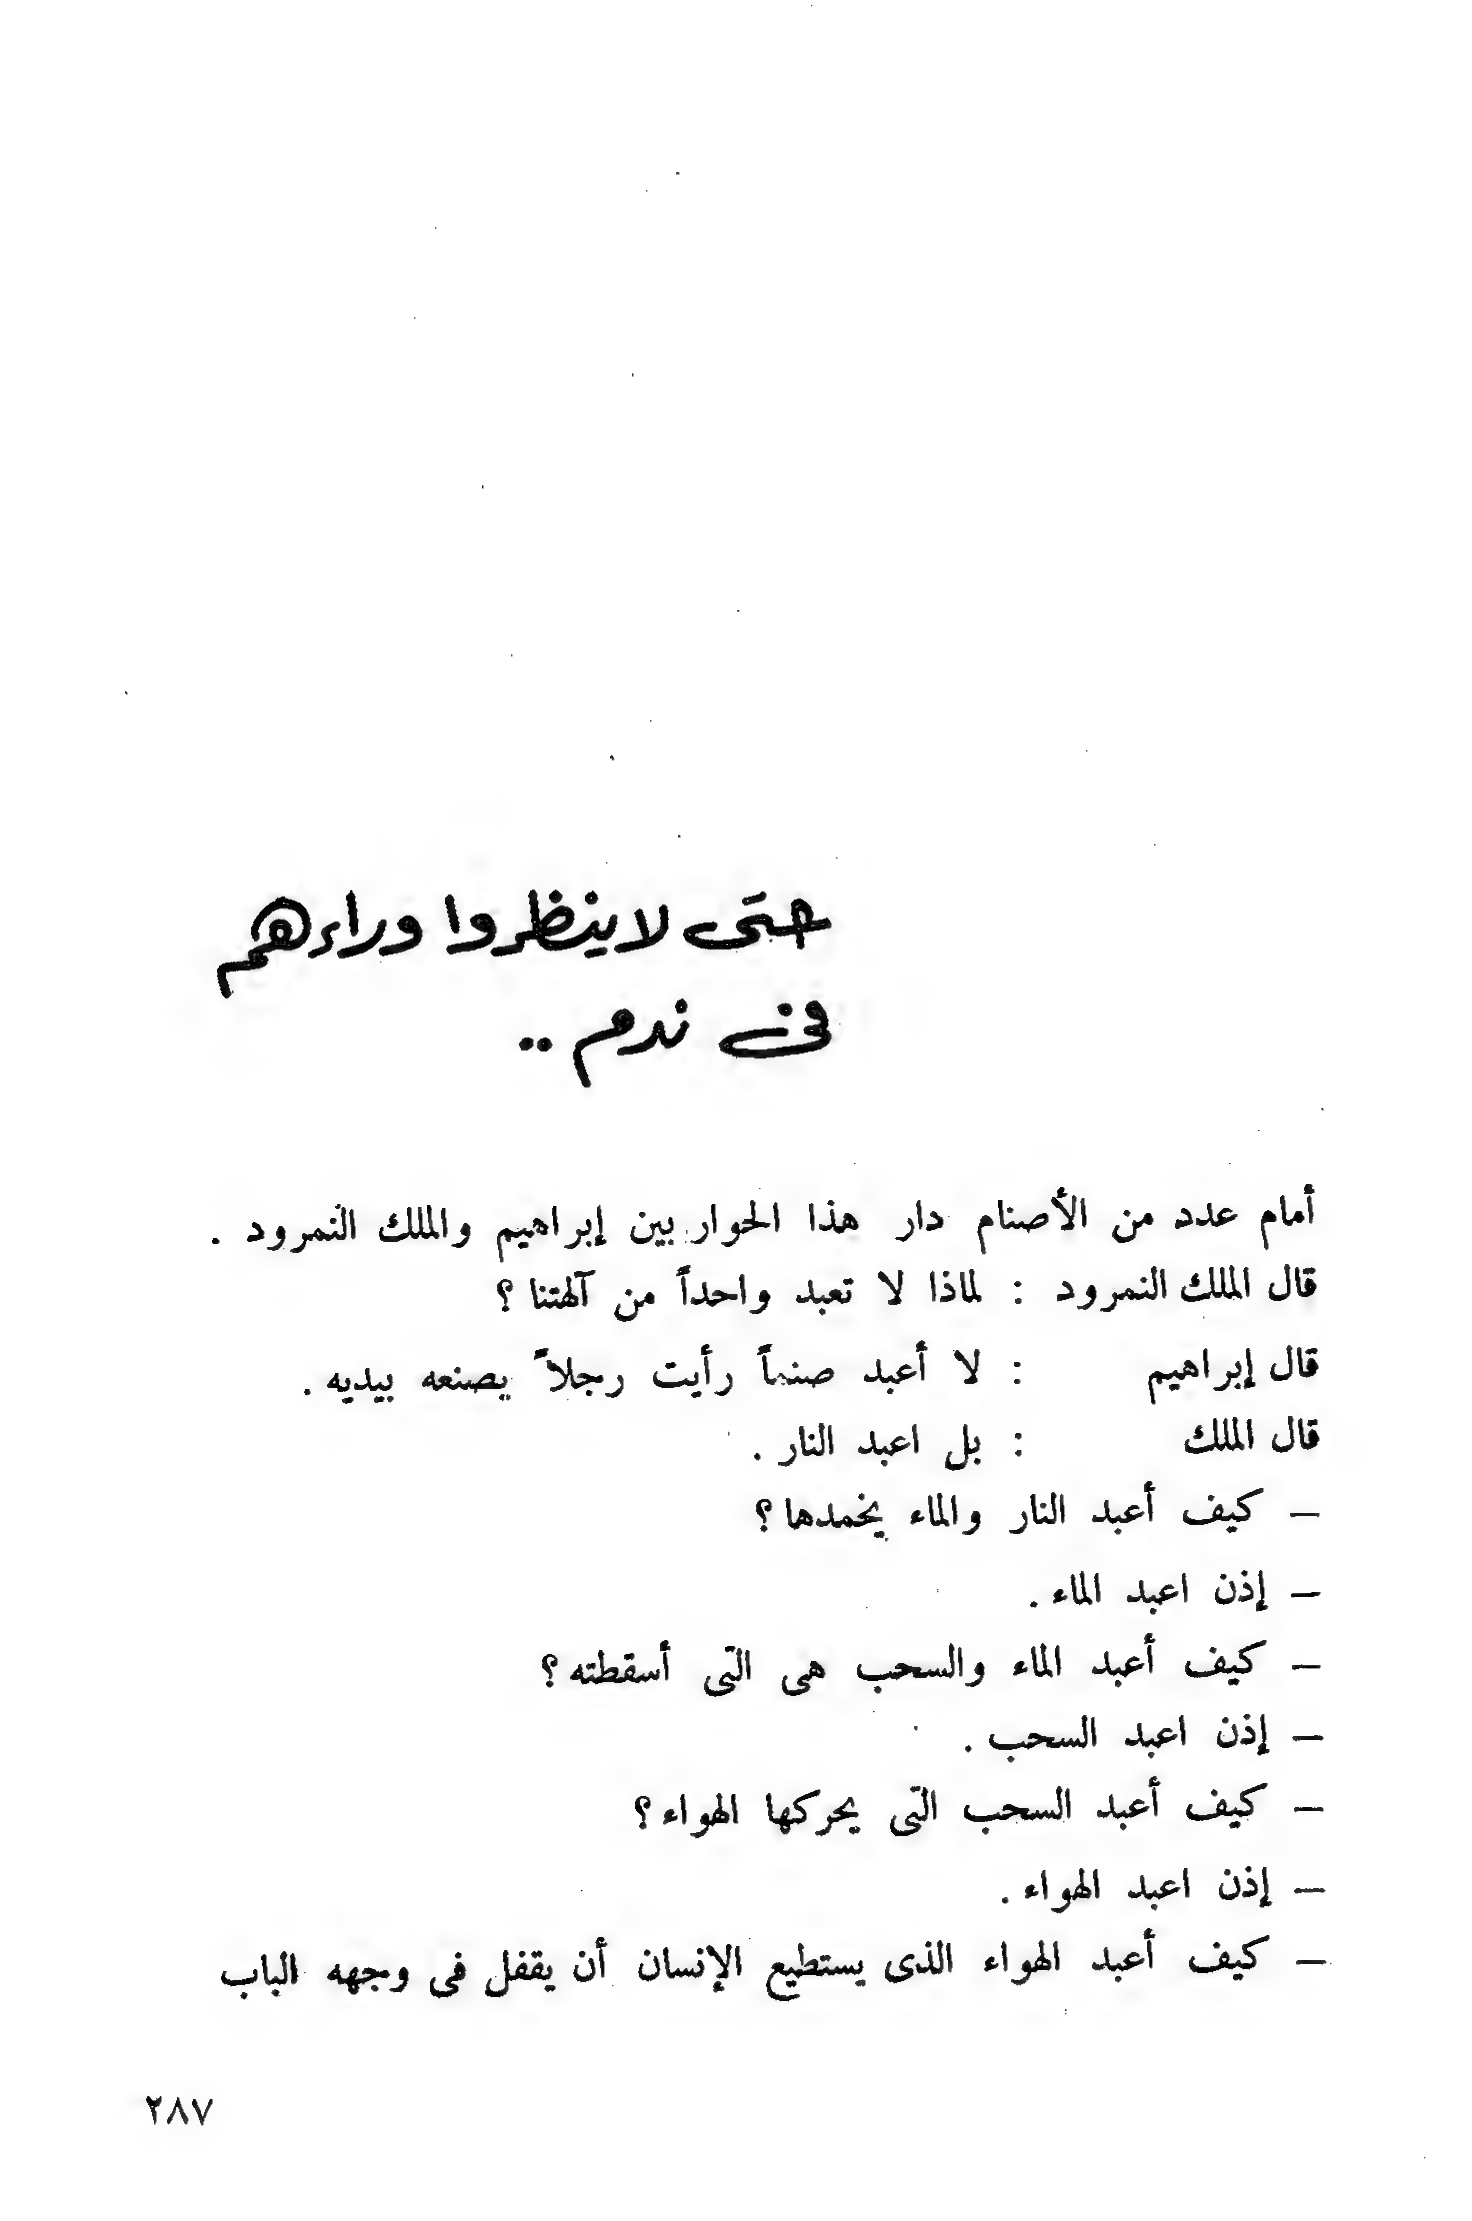 حتى لا ينظروا وراءهم
فى ندم ..
أمام عدد من الأصنام دار هذا الحوار بين إبراهيم والملك النمرود .
قال الملك النمرود : لماذا لا تعبد واحداً من آلهتنا ؟
قال إبراهيم : لا أعبد صنماً رأيت رجلاً يصنعه بيديه .
قال الملك : بل اعبد النار .
– كيف أعبد النار والماء يخمدها ؟
– إذن اعبد الماء .
– كيف أعبد الماء والسحب هى التى أسقطته ؟
– إذن اعبد السحب .
– كيف أعبد السحب التى يحركها الهواء ؟
– إذن اعبد الهواء .
– كيف أعبد الهواء الذى يستطيع الإنسان أن يقفل فى وجهه الباب
٢٨٧